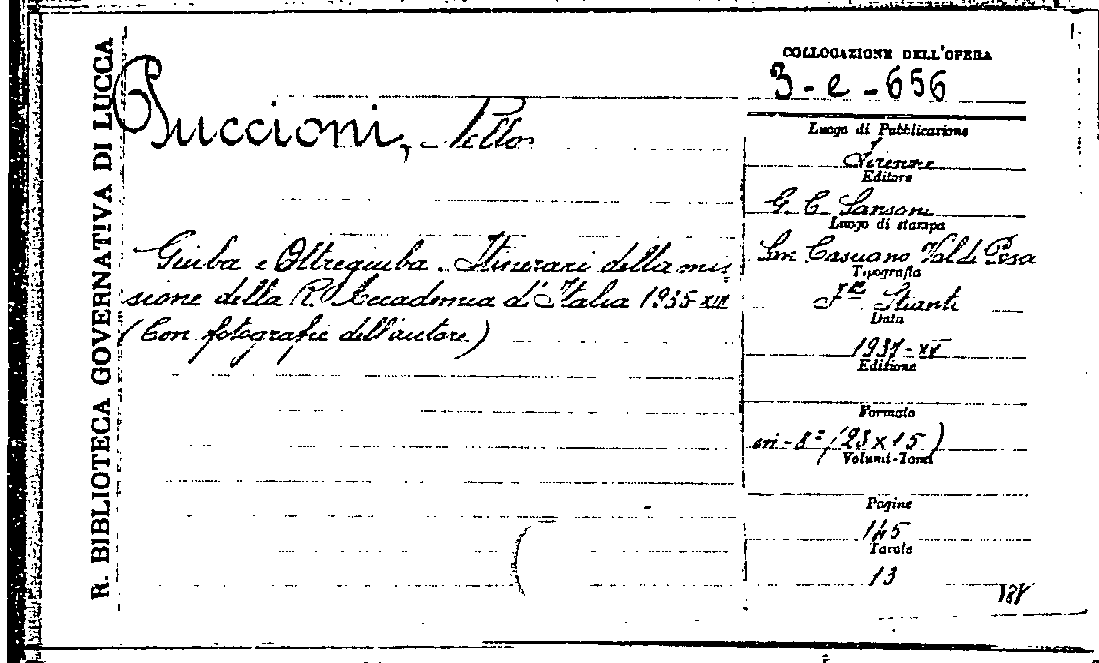 R. BIBLIOTECA GOVERNATIVA DI LUCCA
COLLOCAZIONE DELL'OPERA
3-e-656
Puccioni, Nello
Luogo di Pubblicazione
Firenze
Editore
G. C. Sansoni
Luogo di stampa
Giuba e Oltregiuba. Itinerari della mis
sione della R. Accademia d'Italia 1935-XIII
(Con fotografie dell'autore)
San Casciano Val di Pesa
Tipografia
Stianti
Data
1937-XV
Edizione
Formato
in-8° (23x15)
Volumi-Tomi
Pagine
145
Tavole
13